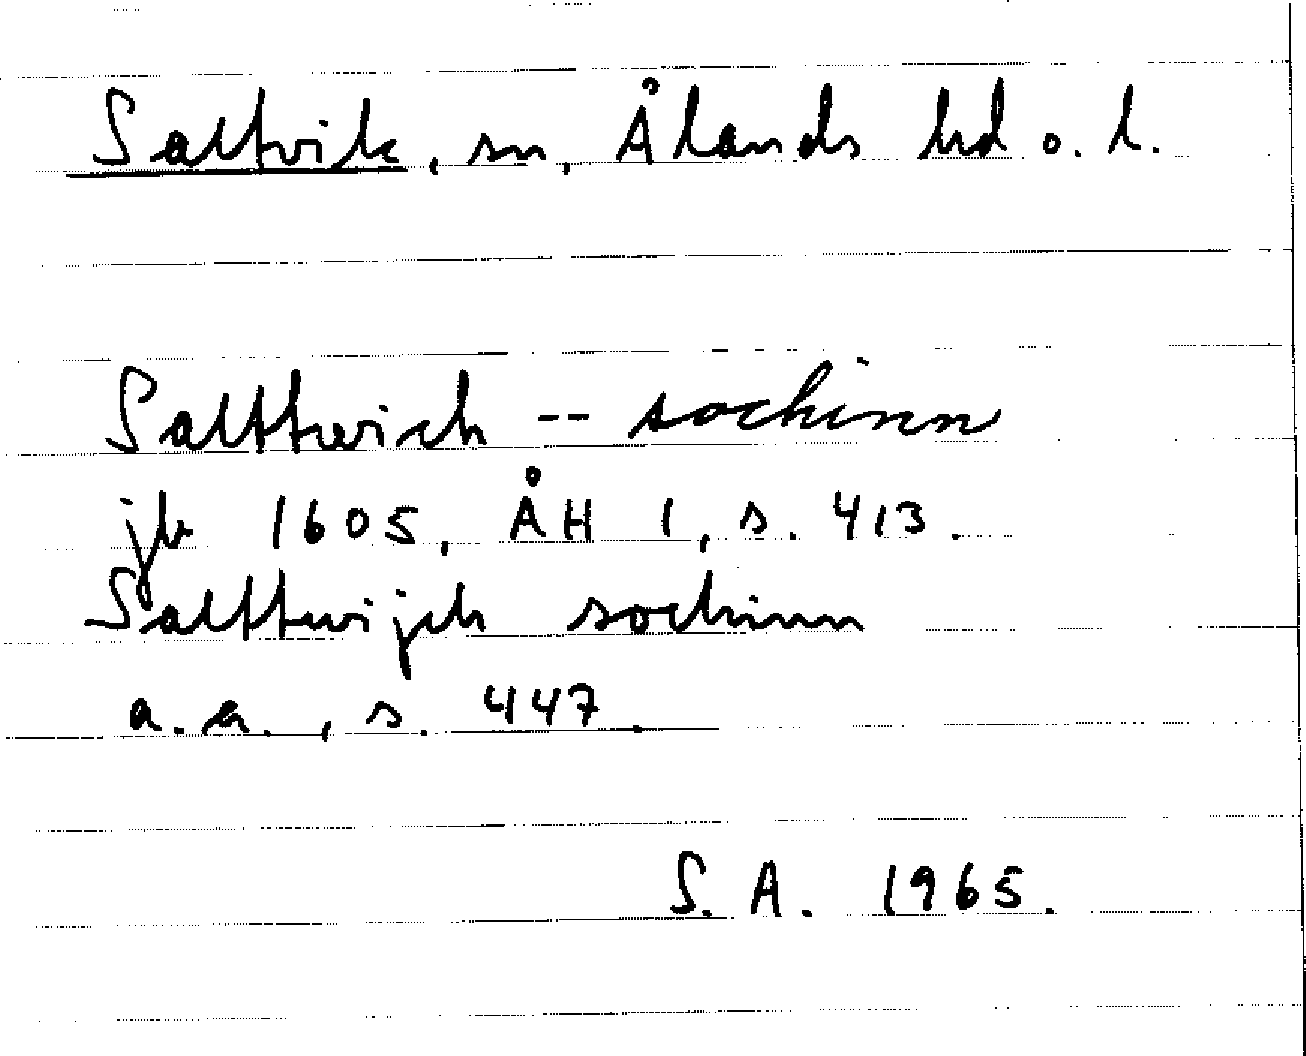 Saltvik, sn, Ålands hd o. l.
Salttwich -- sochinn
jb 1605, ÅH 1, s. 413.
Salttwijch sochinn
a. a., s. 447.
S. A. 1965.